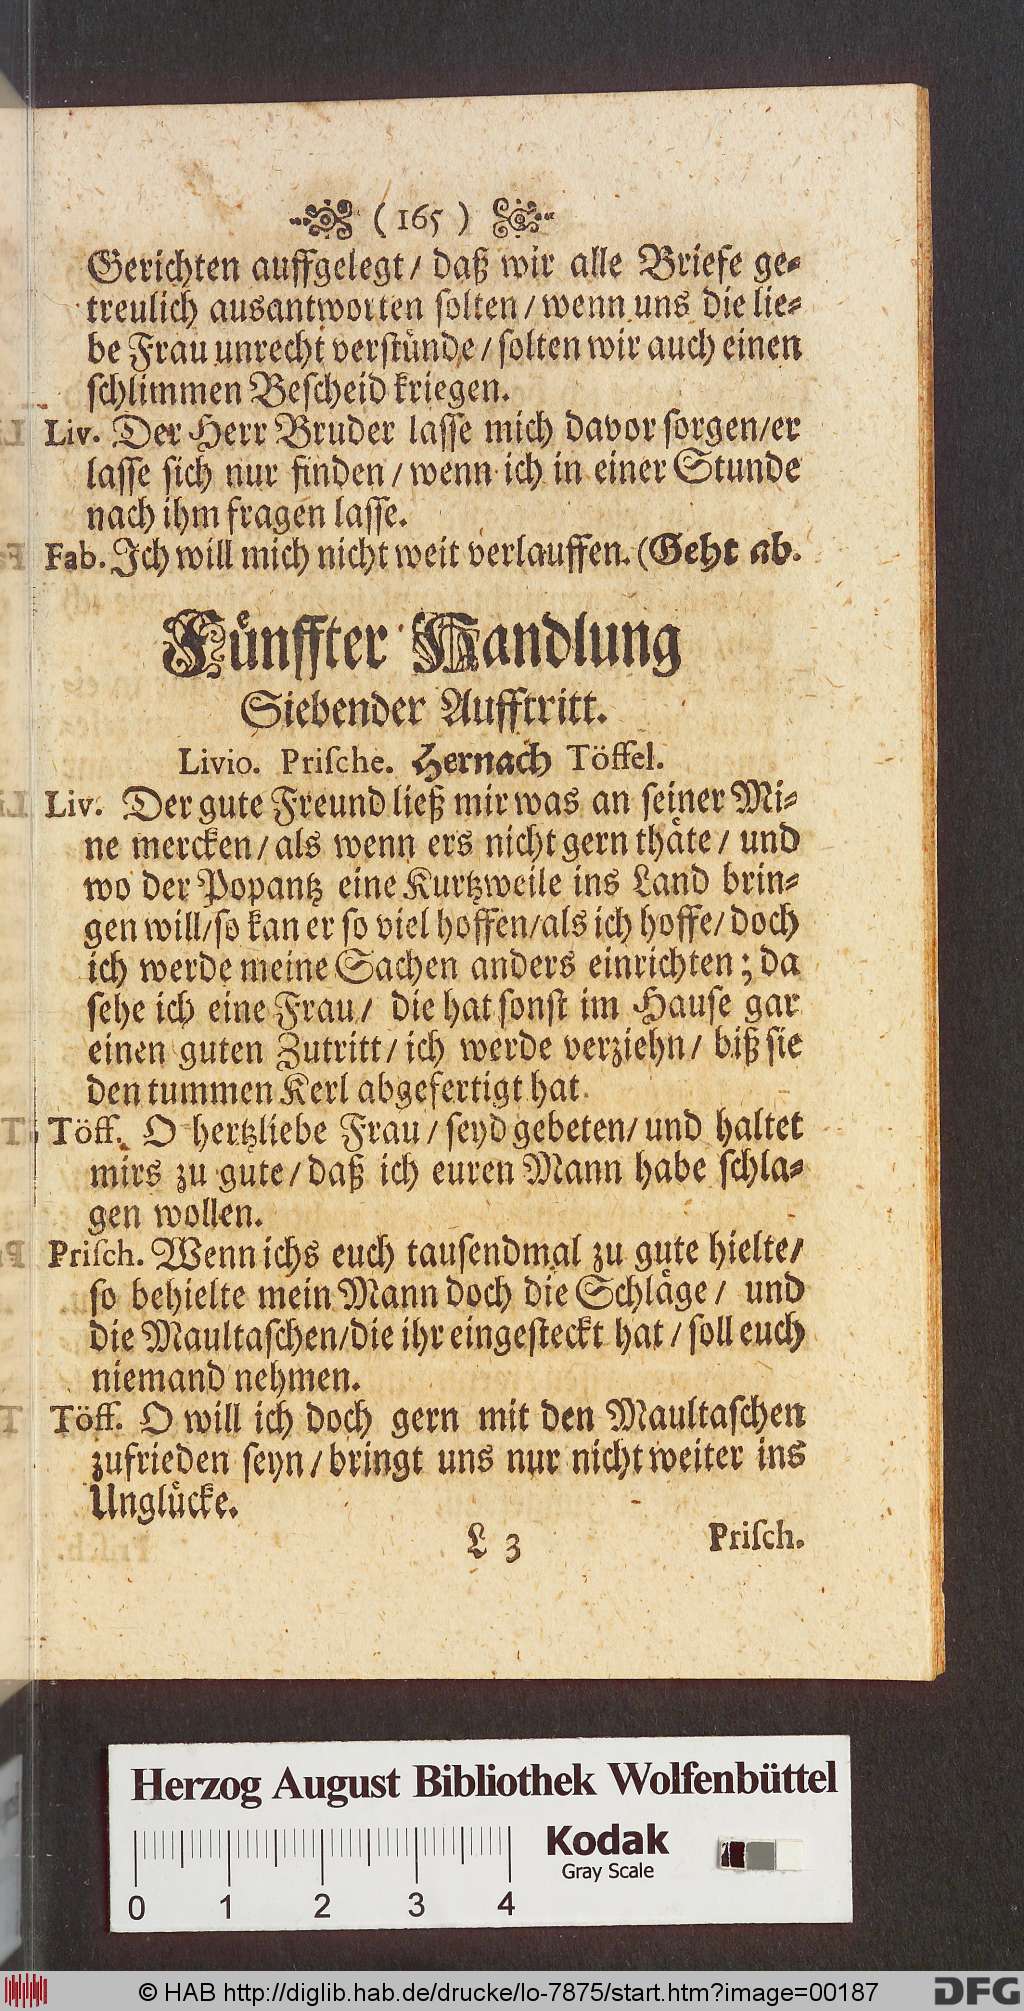 ( 165 )
Gerichten auffgelegt / daß wir alle Briefe ge-
treulich ausantworten solten / wenn uns die lie-
be Frau unrecht verstünde / solten wir auch einen
schlimmen Bescheid kriegen.
Liv. Der Herr Bruder lasse mich davor sorgen/er
lasse sich nur finden / wenn ich in einer Stunde
nach ihm fragen lasse.
Fab. Ich will mich nicht weit verlauffen. (Geht ab.
Fünffter Handlung
Siebender Aufftritt.
Livio. Prische. Hernach Töffel.
Liv. Der gute Freund ließ mir was an seiner Mi-
ne mercken / als wenn ers nicht gern thäte / und
wo der Popantz eine Kurtzweile ins Land brin-
gen will/so kan er so viel hoffen/als ich hoffe/ doch
ich werde meine Sachen anders einrichten; da
sehe ich eine Frau / die hat sonst im Hause gar
einen guten Zutritt / ich werde verziehn / biß sie
den tummen Kerl abgefertigt hat.
Töff. O hertzliebe Frau / seyd gebeten / und haltet
mirs zu gute / daß ich euren Mann habe schla-
gen wollen.
Prisch. Wenn ichs euch tausendmal zu gute hielte/
so behielte mein Mann doch die Schläge / und
die Maultaschen/die ihr eingesteckt hat / soll euch
niemand nehmen.
Töff. O will ich doch gern mit den Maultaschen
zufrieden seyn / bringt uns nur nicht weiter ins
Unglücke.
L 3 Prisch.
Herzog August Bibliothek Wolfenbüttel
Kodak
Gray Scale
0 1 2 3 4
© HAB http://diglib.hab.de/drucke/lo-7875/start.htm?image=00187
DFG